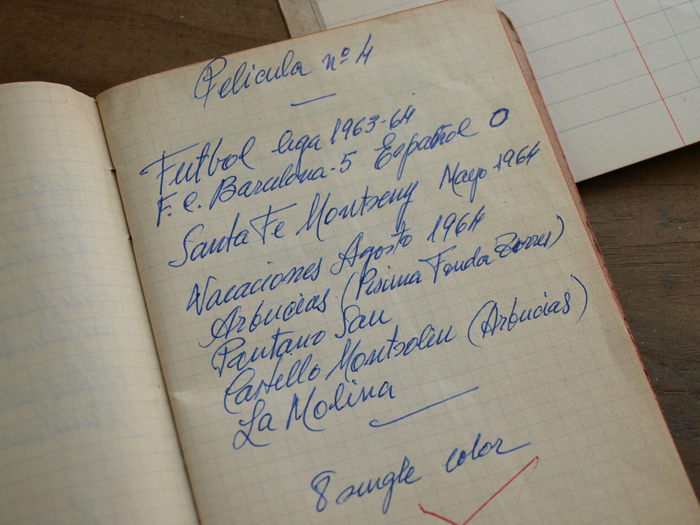 Pelicula nº 4
Futbol liga 1963-64
F. C. Barcelona-5 Español 0
Santa Fe Montseny Mayo 1964
Vacaciones Agosto 1964
Arbucias (Pisina Fonda Torres)
Pantano Sau
Castello Montsoliu (Arbucias)
La Molina
8 single color